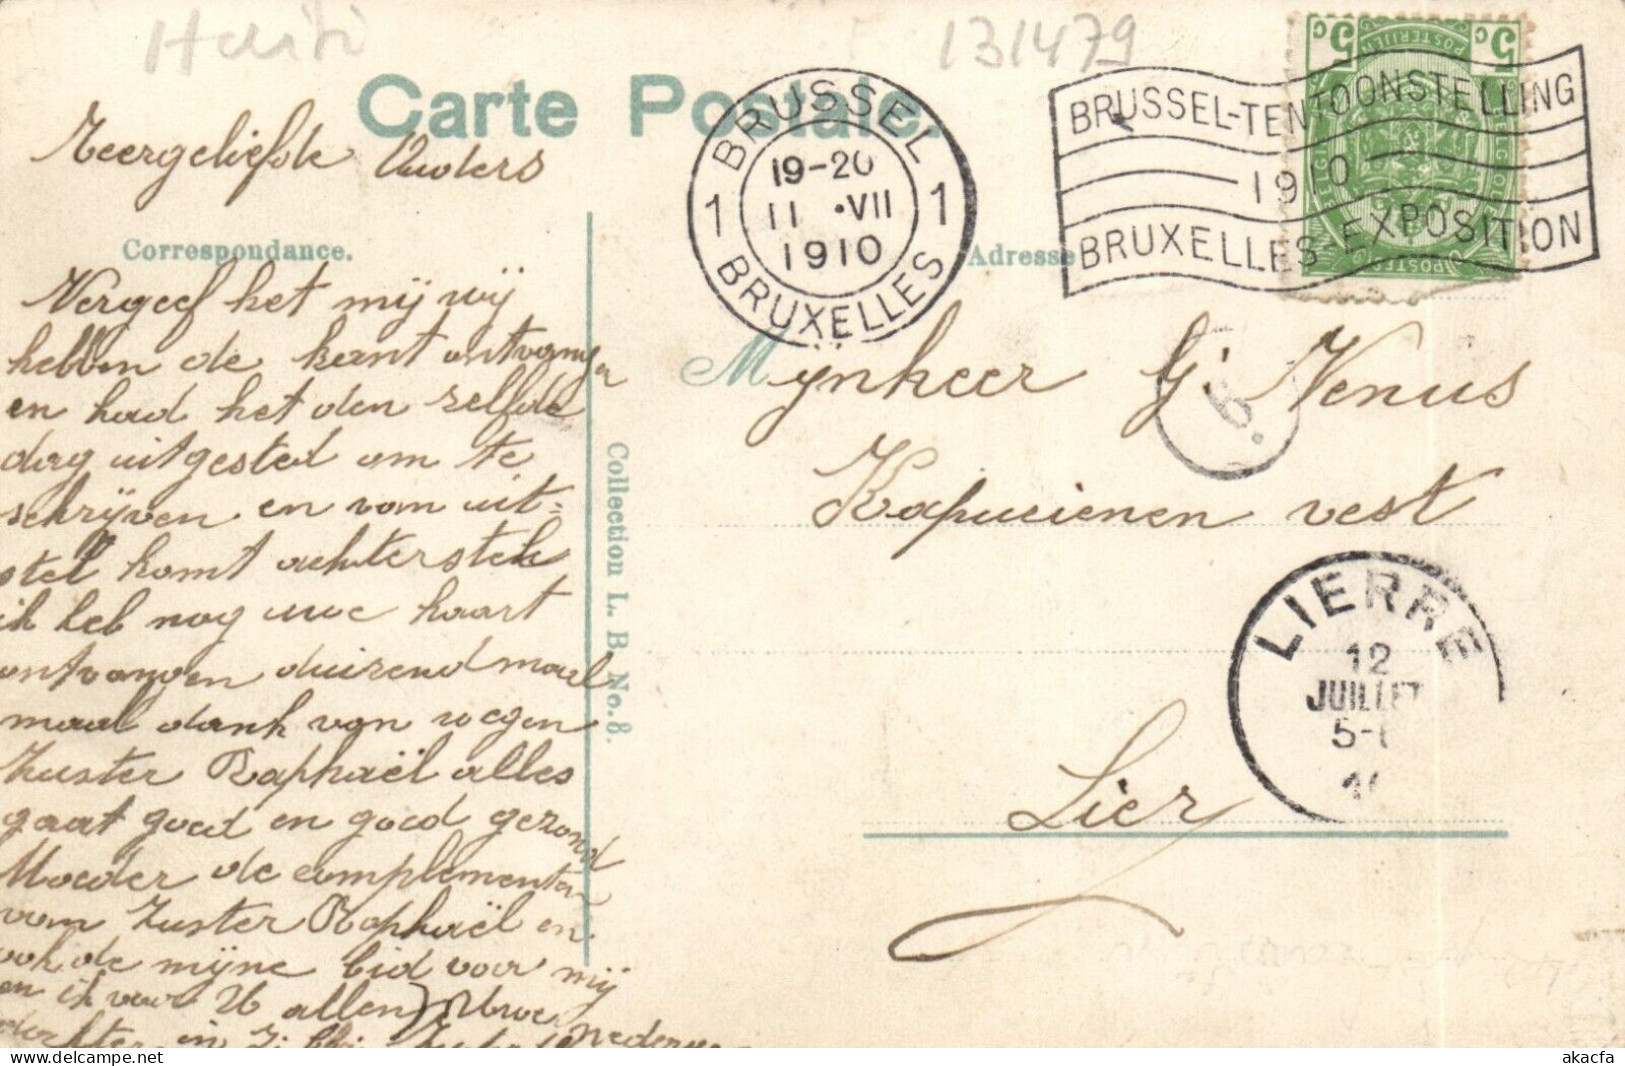 Haiti
131479
Carte Postale.
Zeergeliefde Ouders
Correspondance.
Vergeef het mij wij
hebben de kant ontvangen
en had het den zelfde
dag uitgested om te
schrijven en vom uit=
stel komt achterstel
ik heb nog uwe kaart
ontvangen duizend mael
maal dank van wegen
Zuster Raphaël alles
gaat goed en goed gezond
Moeder de complementen
vom Zuster Raphaël en
ook de mijne bid voor mij
en ik voor U allen Uwe
nederige
dochter in
Collection L. B. No. 8.
BRUSSEL
1 19-20 1
11 •VII
1910
BRUXELLES
BRUSSEL-TENTOONSTELLING
1910
BRUXELLES-EXPOSITION
5c 5c
POSTERIJEN
POSTES
Adresse
6.
Mijnheer G. Venus
Kapucienen vest
Lier
LIERRE
12
JUILLET
5-
akacfa